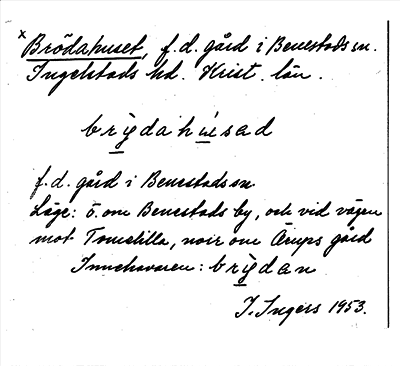 x Brödahuset, f.d. gård i Benestads sn.
Ingelstads hd. Krist. län.
brỳdahúsad
f.d. gård i Benestads sn
Läge: ö. om Benestads by, och vid vägen
mot Tomelilla, norr om Årups gård
Innehavaren: brỳdan
I. Ingers 1953.